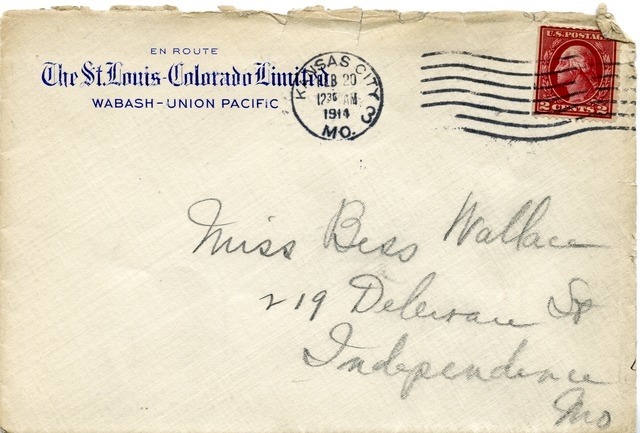 EN ROUTE
The St. Louis-Colorado Limited
WABASH-UNION PACIFIC
KANSAS CITY 3
FEB 20
1230 AM
1914
MO.
U.S. POSTAGE
2 CENTS 2
Miss Bess Wallace
219 Deleware St
Independence
Mo